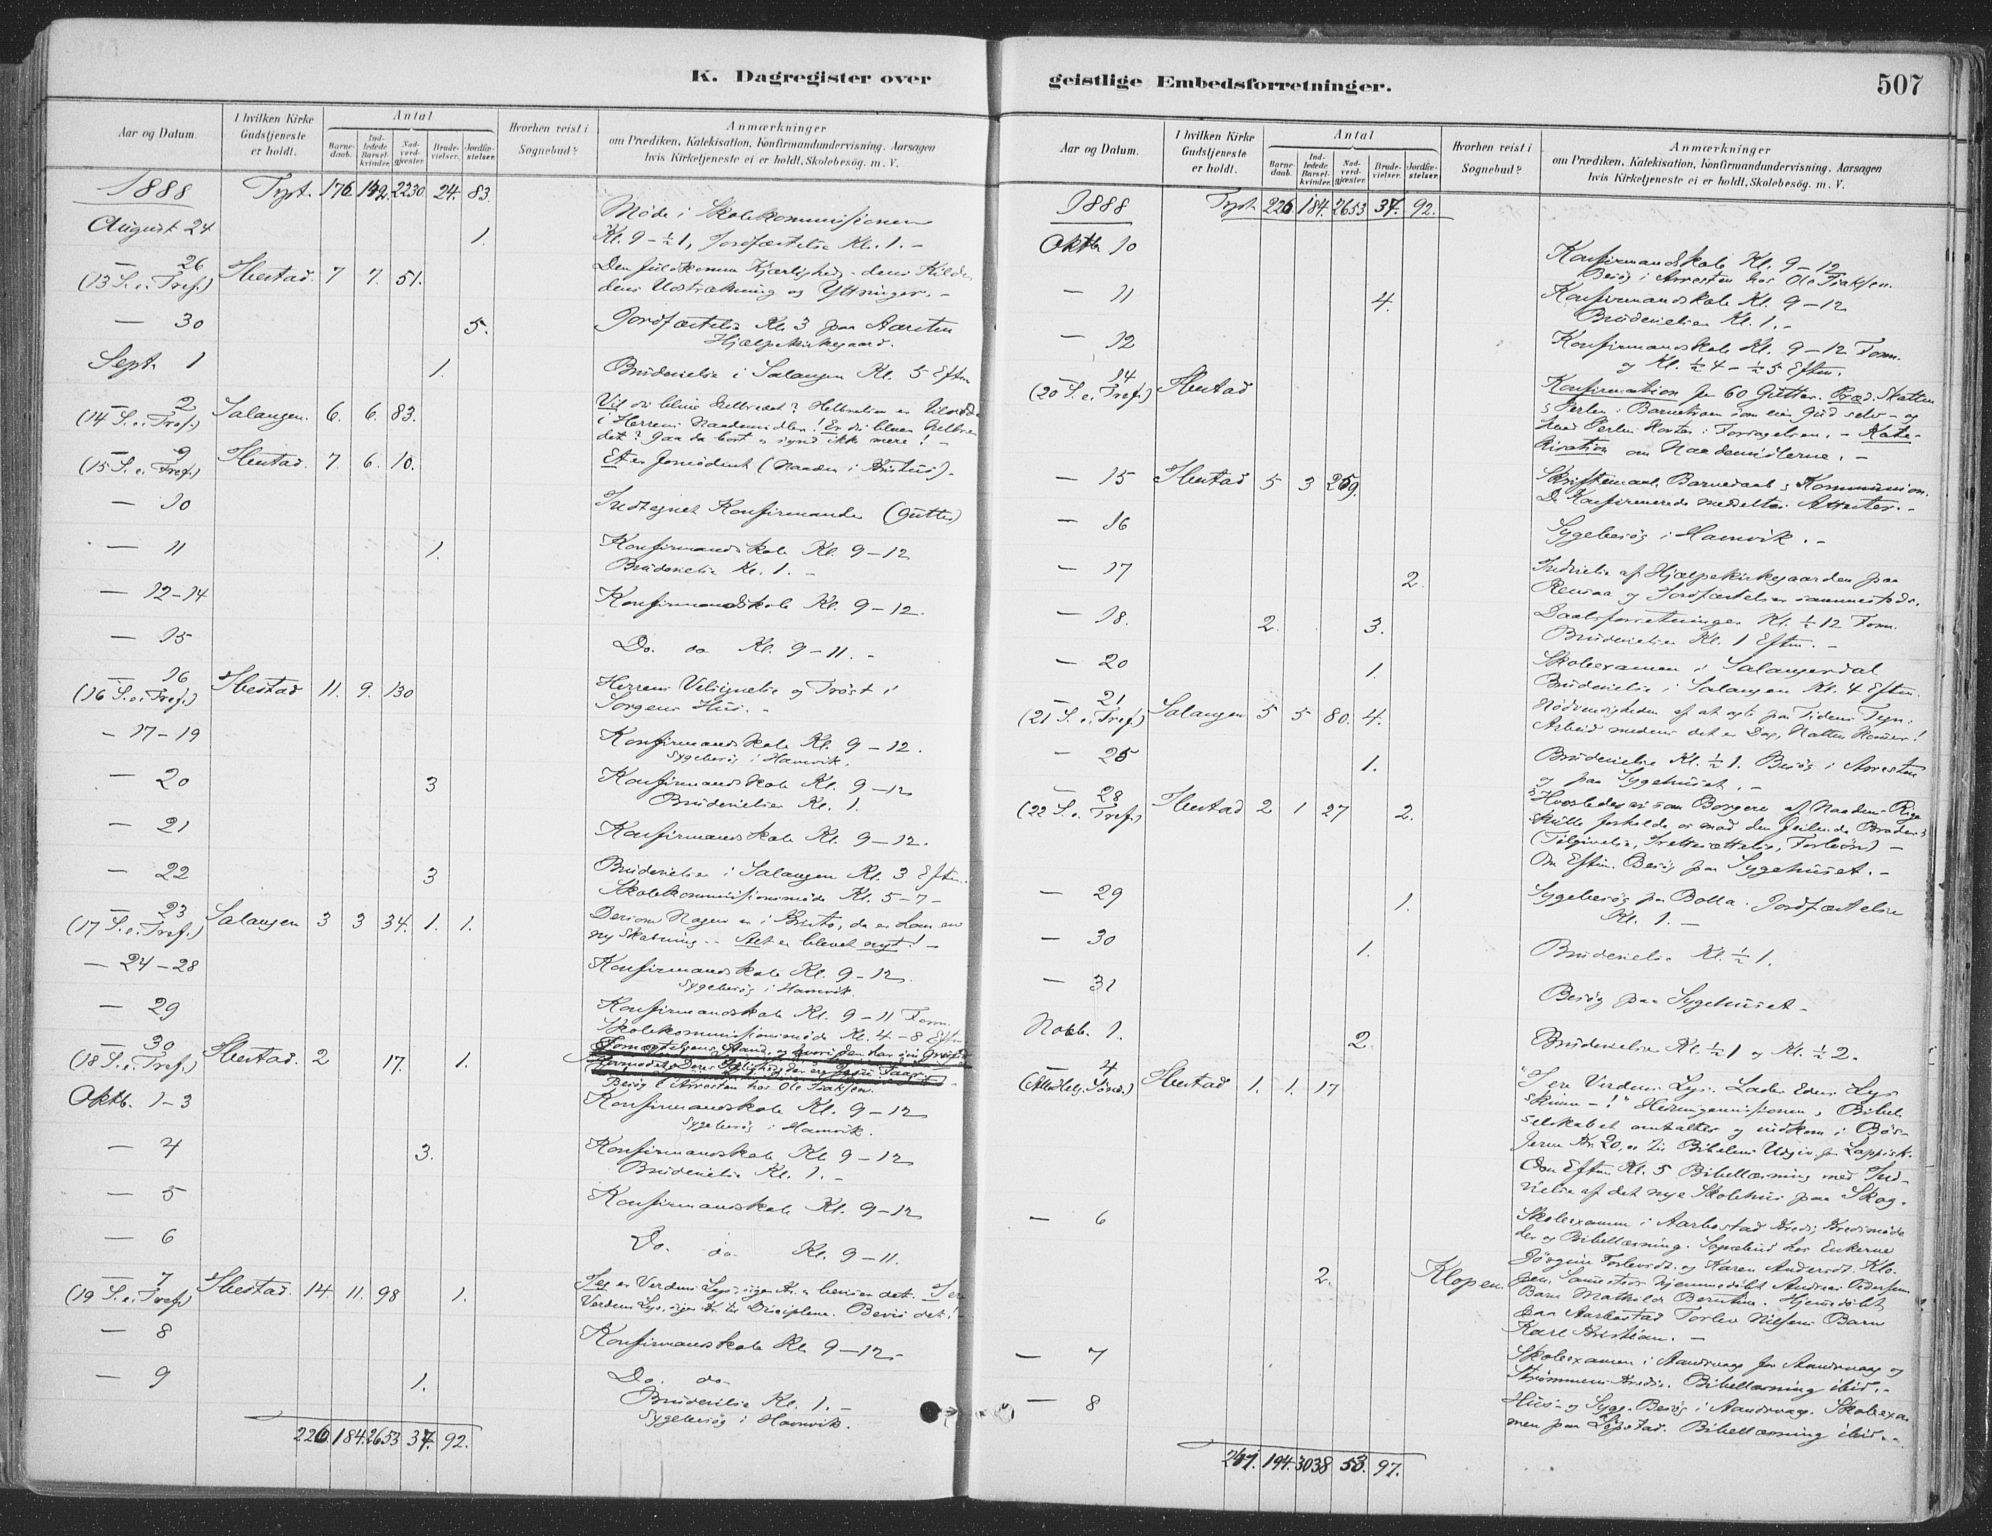 K. Dagregister over
geistlige Embedsforretninger.
507
Aar og Datum.
I hvilken Kirke Gudstjeneste er holdt.
Antal
Barnedaab.
Indledede Barselkvinder.
Nadverdgjæster.
Brudevielser.
Jordfæstelser.
Hvorhen reist i Sognebud?
Anmærkninger
om Prædiken, Katekisation, Konfirmandundervisning, Aarsagen
hvis Kirketjeneste ei er holdt, Skolebesøg. m. V.
1888 Tpt. 176 149. 2230. 24. 83.
August 24 1. Møde i Skolekommissionen
Kl. 9 - ½1, Jordfæstelse Kl. 1. -
— 26 (13 S. e. Tref.) Ibestad. 7 7. 51. Den fuldkomne Kjærlighed - dens Kilde
dens Udstrækning og Yttringer. -
— 30 5. Jordfæstelse Kl. 3 paa Aarsten
Hjælpekirkegaard.
Sept. 1 1. Brudevielse i Salangen Kl. 5 Eftm
— 2 (14 S. e. Tref.) Salangen. 6. 6. 83. Vil du blive helbredet?
i Herrens Naademidler!
det? Gaa da bort & synd ikke mere! -
— 9 (15 S. e. Tref.) Ibestad. 7. 6. 10. Et er fornødent (Naaden i Kristus). -
— 10 Indtegnet Konfirmander (Gutter)
— 11 1. Konfirmandskole Kl. 9-12
Brudevielse Kl. 1. -
— 12-14 Konfirmandskole Kl. 9-12.
— 15 Do. do Kl. 9-11. -
— 16 (16 S. e. Tref.) Ibestad 11. 9. 130 Herrens Velsignelse og Trøst i
Sorgens Hus. -
- 17-19 Konfirmandskole Kl. 9-12.
Sygebesøg i Hamnvik.
— 20 3 Konfirmandskole Kl. 9-12
Brudevielse Kl. 1.
— 21 Konfirmandskole Kl. 9-12.
— 22 3 Brudevielse i Salangen Kl. 3 Eftm.
Skolekommissionsmøde Kl. 5-7-
— 23 (17 S. e. Tref.) Salangen 3 3 34. 1. 1. Dersom Nogen er i Kristo, da er han en
ny Skabning. - Alt er blevet nyt! -
— 24-28 Konfirmandskole Kl. 9-12.
Sygebesøg i Hamnvik.
— 29 Konfirmandskole Kl. 9-11 Form.
Skolekommissionsmøde Kl. 4-8 Eftm
— 30 (18 S. e. Tref.) Ibestad. 2 17. 1.
Besøg i Arresten hos Ole Isaksen.
Oktb. 1-3 Konfirmandskole Kl. 9-12
Sygebesøg i Hamnvik.
— 4 3. Konfirmandskole Kl. 9-12
Brudevielse Kl. 1. -
— 5 Konfirmandskole Kl. 9-12
— 6 Do. do- Kl. 9-11.
— 7 (19 S. e. Tref.) Ibestad. 14. 11. 98 1. Jeg er Verdens Lys, siger Kr. & beviser det. I ere
Verdens Lys, siger Kr. til Disciplene. Bevis det!
— 8 Konfirmandskole Kl. 9-12-
— 9 1. Do. do-
Brudevielse Kl. 1. -
Sygebesøg i Hamnvik.
226. 184. 2653 37. 92.
Aar og Datum.
I hvilken Kirke Gudstjeneste er holdt.
Antal
Barnedaab.
Indledede Barselkvinder.
Nadverdgjæster.
Brudevielser.
Jordfæstelser.
Hvorhen reist i Sognebud?
Anmærkninger
om Prædiken, Katekisation, Konfirmandundervisning, Aarsagen
hvis Kirketjeneste ei er holdt, Skolebesøg. m. V.
1888 Tpt. 226 184. 2653 37. 92.
Oktb. 10 Konfirmandskole Kl. 9-12
Besøg i Arresten hos Ole Isaksen.
— 11 4. Konfirmandskole Kl. 9-12
Brudevielser Kl. 1. -
— 12 Konfirmandskole Kl. 9-12 Form.
og Kl. ½4 - ½5 Eftm.
— 14 (20 S. e. Tref.) Ibestad Konfirmation for 60 Gutter. Præd. Skatten
& Perlen i Barnetroen som ein Gud selv - og
hvad Perlen koster i Forsagelsen. - Kate-
kisation om Naademidlerne. -
— 15 Ibestad 5 3 259. Skriftemaal, Barnedaab & Kommunion.
De Konfirmerede meddeltes Attester. -
— 16 Sygebesøg i Hamnvik. -
— 17 2. Indvielse af Hjælpekirkegaarden paa
Rensaa og Jordfæstelser sammesteds.
— 18. 2. 3. Daabsforretninger Kl. ½12 Form.
Brudevielser Kl. 1 Eftm. -
— 20 1. Skoleexamen i Salangsdal
Brudevielse i Salangen Kl. 4 Eftm.
— 21 (21 S. e. Tref.) Salangen 5 5 80. 4. Nødvendigheden af at agte paa Tidens Tegn:
Arbeid medens det er Dag, Natten kommer!
— 25 1. Brudevielse Kl. ½1. Besøg i Arresten
og paa Sygehuset. -
— 28 (22 S. e. Tref.) Ibestad 2 1 27 2. Hvorledes vi som Borgere af Naadens Rige
skulle forholde os mod den feilende Broder:
(Tilgivelse, Irettesættelse, Forbøn) -
Om Eftm. Besøg paa Sygehuset. -
— 29 1. Sygebesøg paa Bolla. Jordfæstelse
Kl. 1. -
— 30 1. Brudevielse Kl. ½1.
— 31 Besøg paa Sygehuset -
Novb. 1. 2. Brudevielser Kl. ½1 og Kl. ½2.
— 4 (Allehelg. Sønd.) Ibestad 1. 1. 17 "I ere Verdens Lys. Lader Eders Lys
skinne - !" Hedningemissionen & Bibel
selskabet omtaltes og indkom i Bøs-
serne Kr. 20,00 til Bibelens Udgiv. paa Lappisk.
Om Eftm Kl. 5 Bibellæsning med Ind-
vielse af det nye Skolehus paa Skog.
— 6 2. Klopen. Skoleexamen i Aarbostad Kreds, Kredsmøde
der og Bibellæsning. Sognebud hos Enkerne
Jørgine Torlevsdt. og Karen Andersdt. Klo-
pen. Sammesteds hjemmedøbt Andreas Pedersens
Barn Mathilde Berntine. Hjemmedøbt
paa Aarbostad Torlev Nilsens Barn
Karl Kristian. -
— 7 Skoleexamen i Aandervaag for Aandervaag og
Strømmens Kreds. Bibellæsning ibid. -
— 8 Hus- og Syge-Besøg i Aandervaag. Skoleexa-
men paa Løpstad. Bibellæsning ibid. -
241. 194. 3038 53. 97.